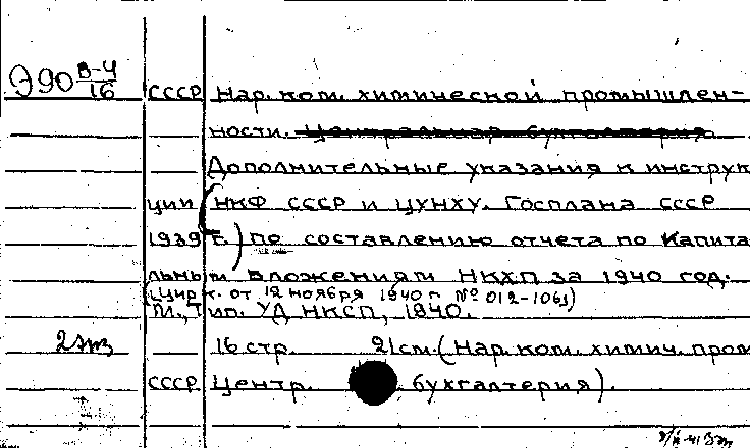 Э90 В-4/16
СССР Нар. ком. химической промышлен-
ности. Центральная бухгалтерия
Дополнительные указания к инструк
ции (НКФ СССР и ЦУНХУ. Госплана СССР
1939 г.) по составлению отчета по капита
льным вложениям НКХП за 1940 год.
(Цирк. от 12 ноября 1940 г. № 012-106)
М., Тип. УД НКСП, 1940.
2 экз 16 стр. 21 см. (Нар. ком. химич. пром
СССР Центр. бухгалтерия).